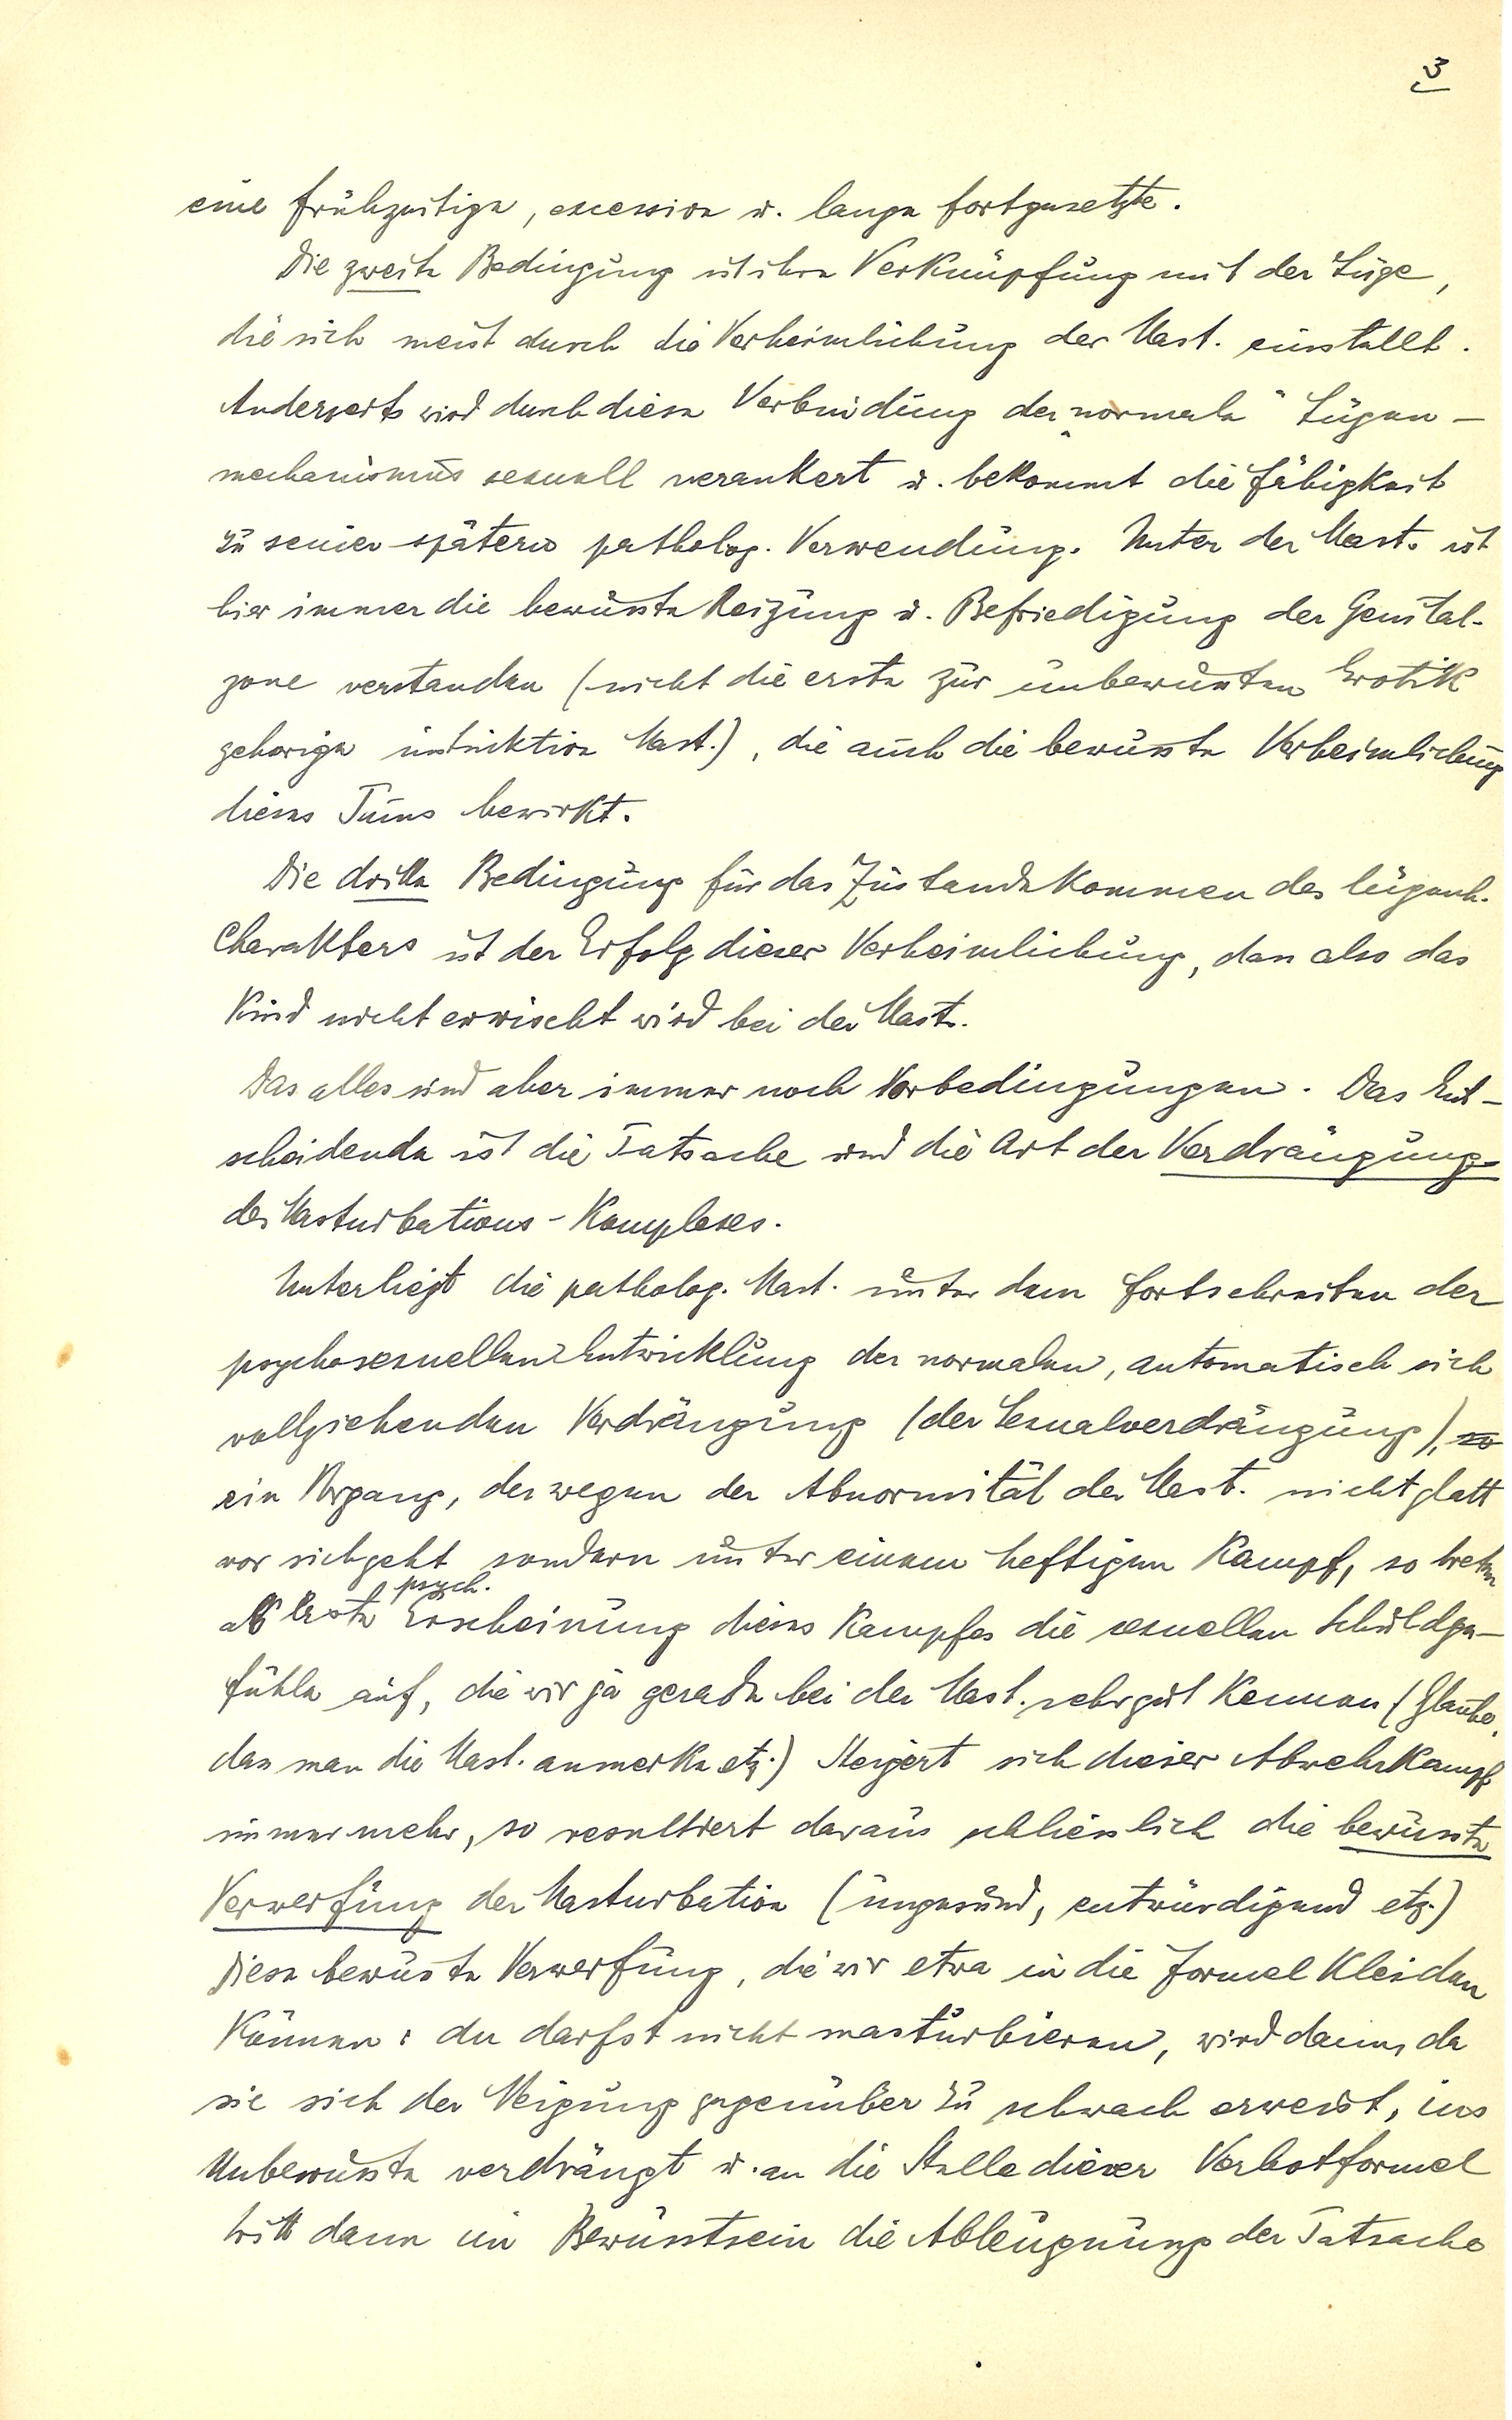 3
eine frühzeitige, excessive u. lange fortgesetzte.
Die zweite Bedingung ist ihre Verknüpfung mit der Lüge,
die sich meist durch die Verheimlichung der Mast. einstellt.
Anderseits wird durch diese Verbindung der „normale" Lügen-
mechanismus sexuell verankert u. bekommt die Fähigkeit
zu seiner späteren patholog. Verwendung. Unter der Mast. ist
hier immer die bewusste Reizung u. Befriedigung der Genital-
zone verstanden (nicht die erste zur unbewussten Erotik
gehorige instinktive Mast.), die auch die bewusste Verheimlichung
dieses Tuns bewirkt.
Die dritte Bedingung für das Zustandekommen des lügenh.
Charakters ist der Erfolg dieser Verheimlichung, dass also das
Kind nicht erwischt wird bei der Mast.
Das alles sind aber immer noch Vorbedingungen. Das Ent-
scheidende ist die Tatsache und die Art der Verdrängung
des Masturbations-Komplexes.
Unterliegt die patholog. Mast. unter dem Fortschreiten der
psychosexuellen Entwicklung der normalen, automatisch sich
vollziehenden Verdrängung (der Sexualverdrängung), so
ein Vorgang, der wegen der Abnormität der Mast. nicht glatt
vor sich geht sondern unter einem heftigen Kampf, so treten
als erste psych. Erscheinung dieses Kampfes die sexuellen Schuldge-
fühle auf, die wir ja gerade bei der Mast. sehr gut kennen (Glaube,
dass man die Mast. anmerke etz.) Steigert sich dieser Abwehrkampf
immer mehr, so resultiert daraus schliesslich die bewusste
Verwerfung der Masturbation (ungesund, entwürdigend etz.)
Diese bewusste Verwerfung, die wir etwa in die Formel kleiden
können: du darfst nicht masturbieren, wird dann, da
sie sich der Neigung gegenüber zu schwach erweist, ins
Unbewusste verdrängt u. an die Stelle dieser Verbotformel
tritt dann im Bewusstsein die Ableugnung der Tatsache